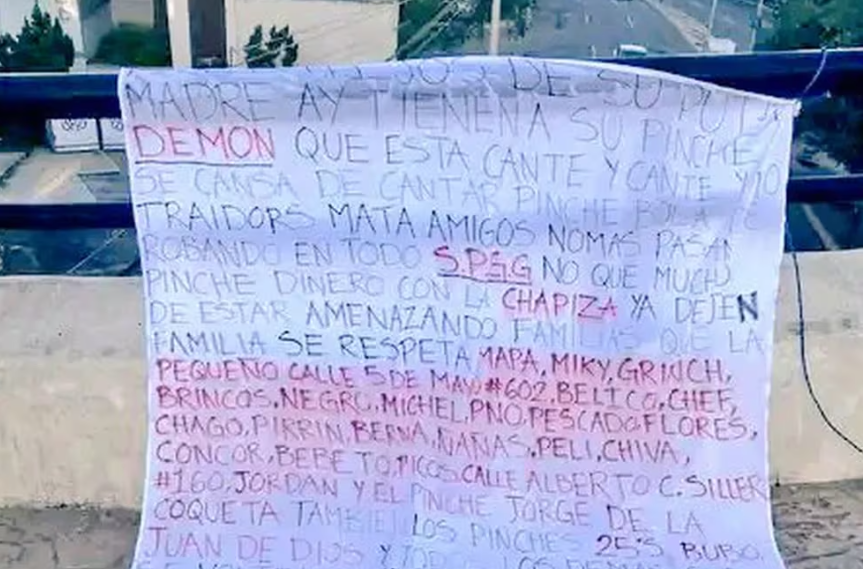 DE SU
MADRE AY TIENEN A SU PINCHE
DEMON QUE ESTA CANTE Y CANTE Y NO
SE CANSA DE CANTAR PINCHE BOLA DE
TRAIDORS MATA AMIGOS NOMAS PASAN
ROBANDO EN TODO S.P.G.G NO QUE MUCHO
PINCHE DINERO CON LA CHAPIZA YA DEJEN
DE ESTAR AMENAZANDO FAMILIAS QUE LA
FAMILIA SE RESPETA MAPA, MIKY, GRINCH,
PEQUEÑO CALLE 5 DE MAYO #602, BELICO, CHEF,
BRINCOS, NEGRO, MICHEL, PNO, PESCADO, FLORES,
CHAGO, PIRRIN, BERNA, ÑAÑAS, PELI, CHIVA,
CONCOR, BEBETO, PICOS CALLE ALBERTO C. SILLER
#160, JORDAN Y EL PINCHE JORGE DE LA
COQUETA TAMBIEN LOS PINCHES 25'S BUBO,
JUAN DE DIOS Y TODOS LOS DEMAS